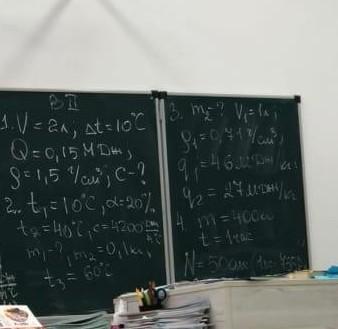 В II
1. V = 2л, Δt = 10°C
Q = 0,15 МДж,
ρ = 1,5 г/см³, c - ?
2. t₁ = 10°C, α = 20%,
t₂ = 40°C, c = 4200 Дж/кг°C
m₁ - ?, m₂ = 0,1 кг,
t₃ = 60°C
3. m₂ - ? V₁ = 1л,
ρ₁ = 0,71 г/см³,
q₁ = 46 МДж/кг
q₂ = 27 МДж/кг
4. m = 400кг
t = 1час
N = 50